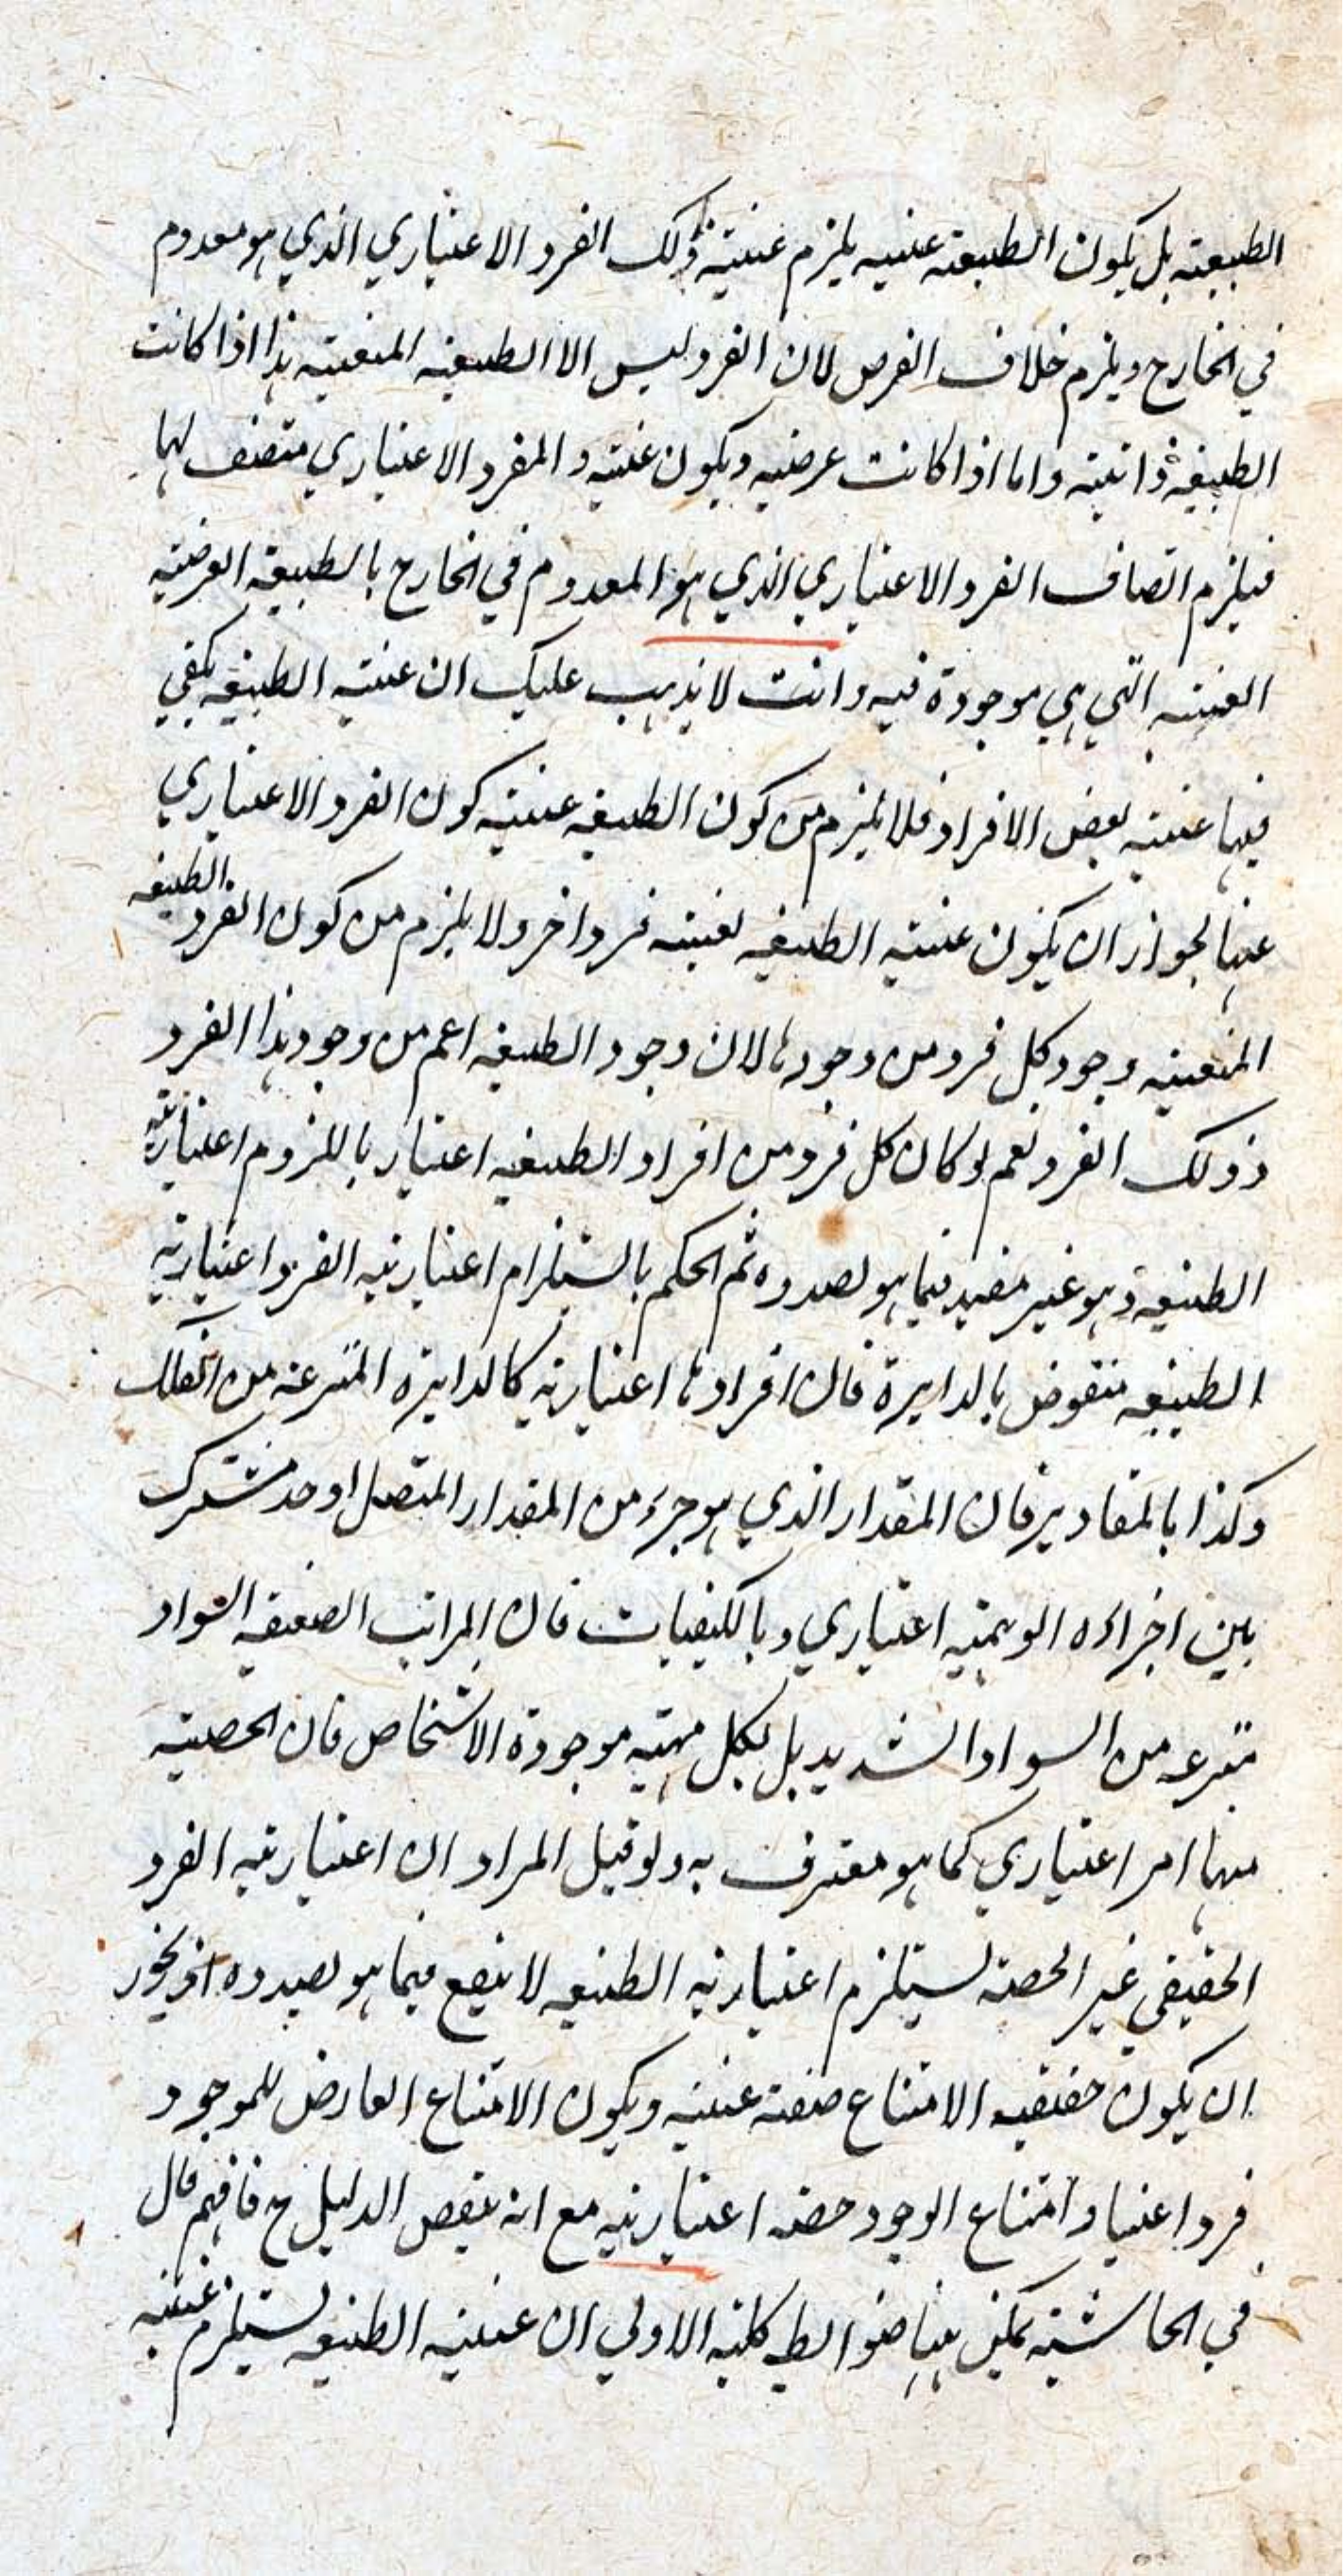 الطبيعة بل يكون الطبيعة عينية يلزم عينية ذلك الفرد الاعتباري الذي هو معدوم
في الخارج ويلزم خلاف الفرض لان الفرد ليس الا الطبيعة المتعينة هذا اذا كانت
الطبيعة ذاتية واما اذا كانت عرضية ويكون عينية و المفرد الاعتباري متصف لها
فيلزم اتصاف الفرد الاعتباري الذي هو المعدوم في الخارج بالطبيعة العرضية
العينية التي هي موجودة فيه وانت لا يذهب عليك ان عينية الطبيعة يكفي
فيها عينية بعض الافراد فلا يلزم من كون الطبيعة عينية كون الفرد الاعتباري
عينا لجواز ان يكون عينية الطبيعة لعينية فرد اخر ولا يلزم من كون الفرد الطبيعة
المتعينة وجود كل فرد من وجودها لان وجود الطبيعة اعم من وجود هذا الفرد
وذلك الفرد نعم لو كان كل فرد من افراد الطبيعة اعتبار يا للزوم اعتبارية
الطبيعة وهو غير مفيد فيما هو بصدده ثم الحكم باستلزام اعتبارية الفرد اعتبارية
الطبيعة منقوض بالدايرة فان افرادها اعتبارية كالدايرة المنتزعة من الفلك
وكذا بالمقادير فان المقدار الذي هو جزء من المقدار المتصل او حد مشترك
بين اجزاءه الوهمية اعتباري وبالكيفيات فان المراتب الضعيفة السواد
منتزعة من السواد الشديد بل بكل مهية موجودة الاشخاص فان الحصة
منها امر اعتباري كما هو معترف به ولو قيل المراد ان اعتبارية الفرد
الحقيقي غير الحصة يستلزم اعتبارية الطبيعة لا ينفع فيما هو بصدده اذ يجوز
ان يكون حقيقة الامتناع صفة عينية ويكون الامتناع العارض للموجود
فردا عينيا وامتناع الوجود حصة اعتبارية مع انه ينقص الدليل ح فافهم قال
في الحاشية يمكن هنا ضوابط كلية الاولي ان عينية الطبيعة يستلزم عينية